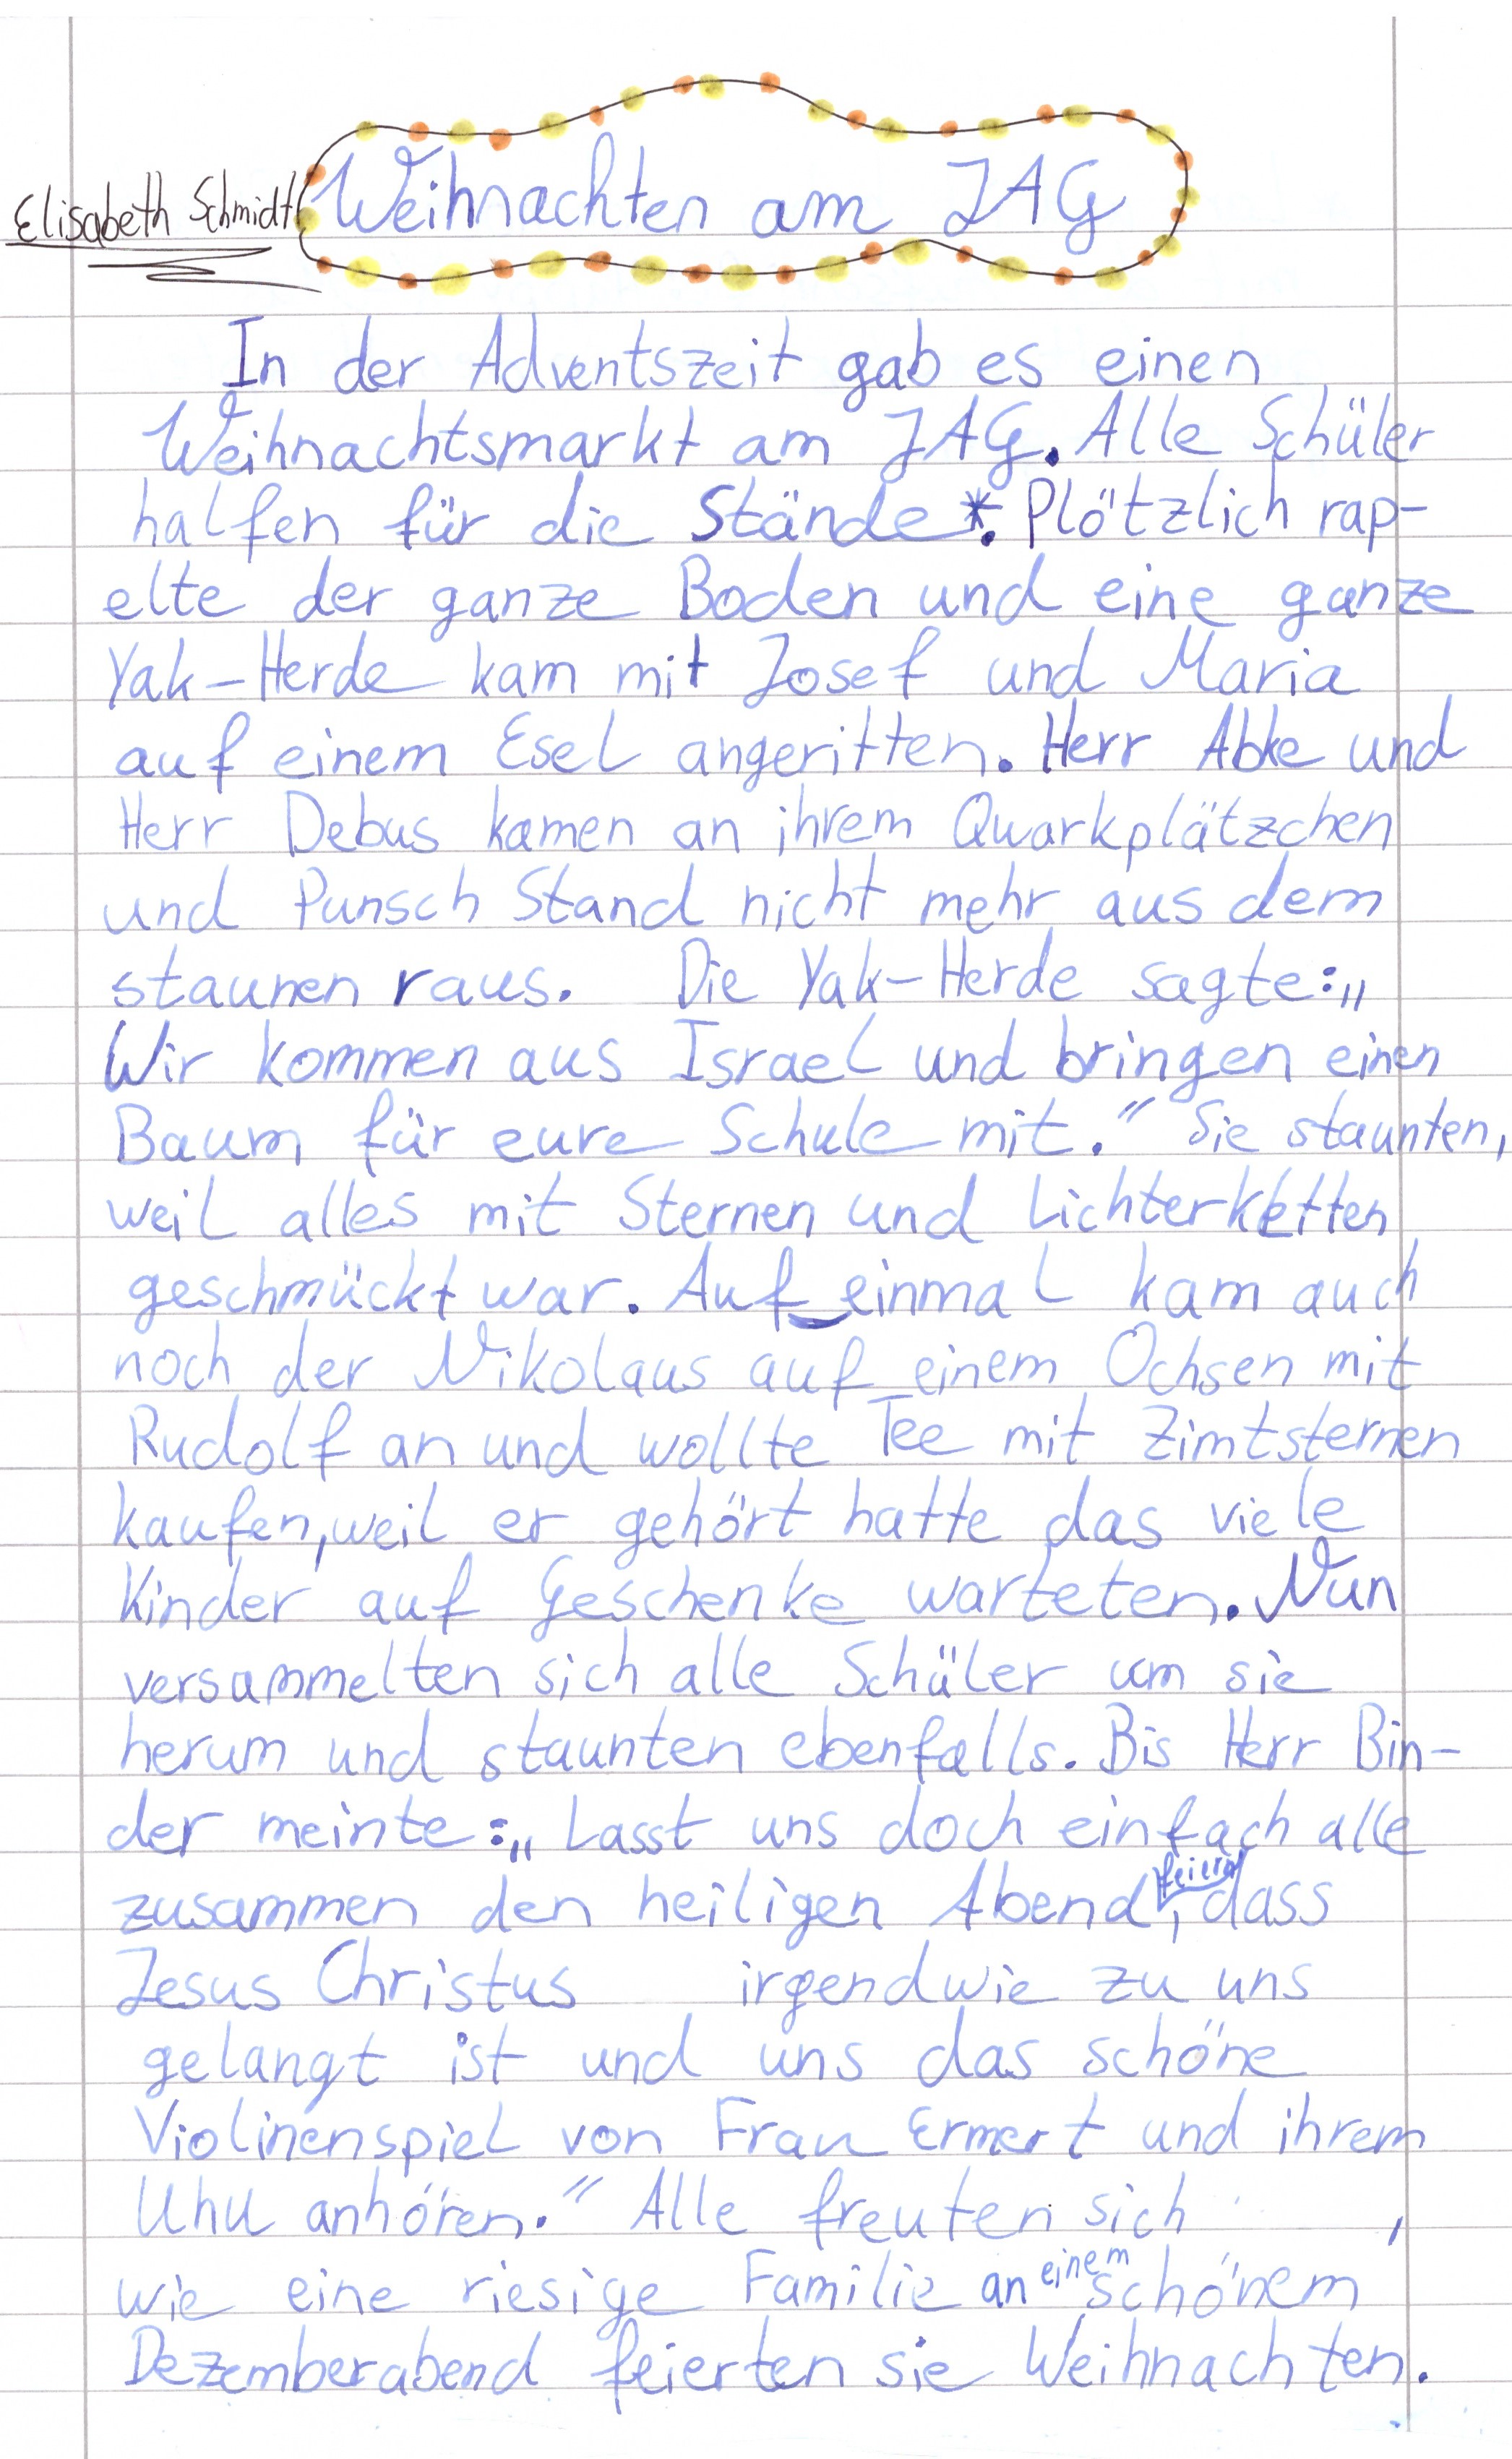 Elisabeth Schmidt
Weihnachten am JAG
In der Adventszeit gab es einen
Weihnachtsmarkt am JAG. Alle Schüler
halfen für die Stände*. Plötzlich rap-
elte der ganze Boden und eine ganze
Yak-Herde kam mit Josef und Maria
auf einem Esel angeritten. Herr Abke und
Herr Debus kamen an ihrem Quarkplätzchen
und Punsch Stand nicht mehr aus dem
staunen raus. Die Yak-Herde sagte:„
Wir kommen aus Israel und bringen einen
Baum für eure Schule mit.“ Sie staunten,
weil alles mit Sternen und Lichterketten
geschmückt war. Auf einmal kam auch
noch der Nikolaus auf einem Ochsen mit
Rudolf an und wollte Tee mit Zimtsternen
kaufen, weil er gehört hatte das viele
Kinder auf Geschenke warteten. Nun
versammelten sich alle Schüler um sie
herum und staunten ebenfalls. Bis Herr Bin-
der meinte:„ Lasst uns doch einfach alle
zusammen den heiligen Abend feiern, dass
Jesus Christus irgendwie zu uns
gelangt ist und uns das schöne
Violinenspiel von Frau Ermert und ihrem
Uhu anhören.“ Alle freuten sich ,
wie eine riesige Familie an einem schönem
Dezemberabend feierten sie Weihnachten.